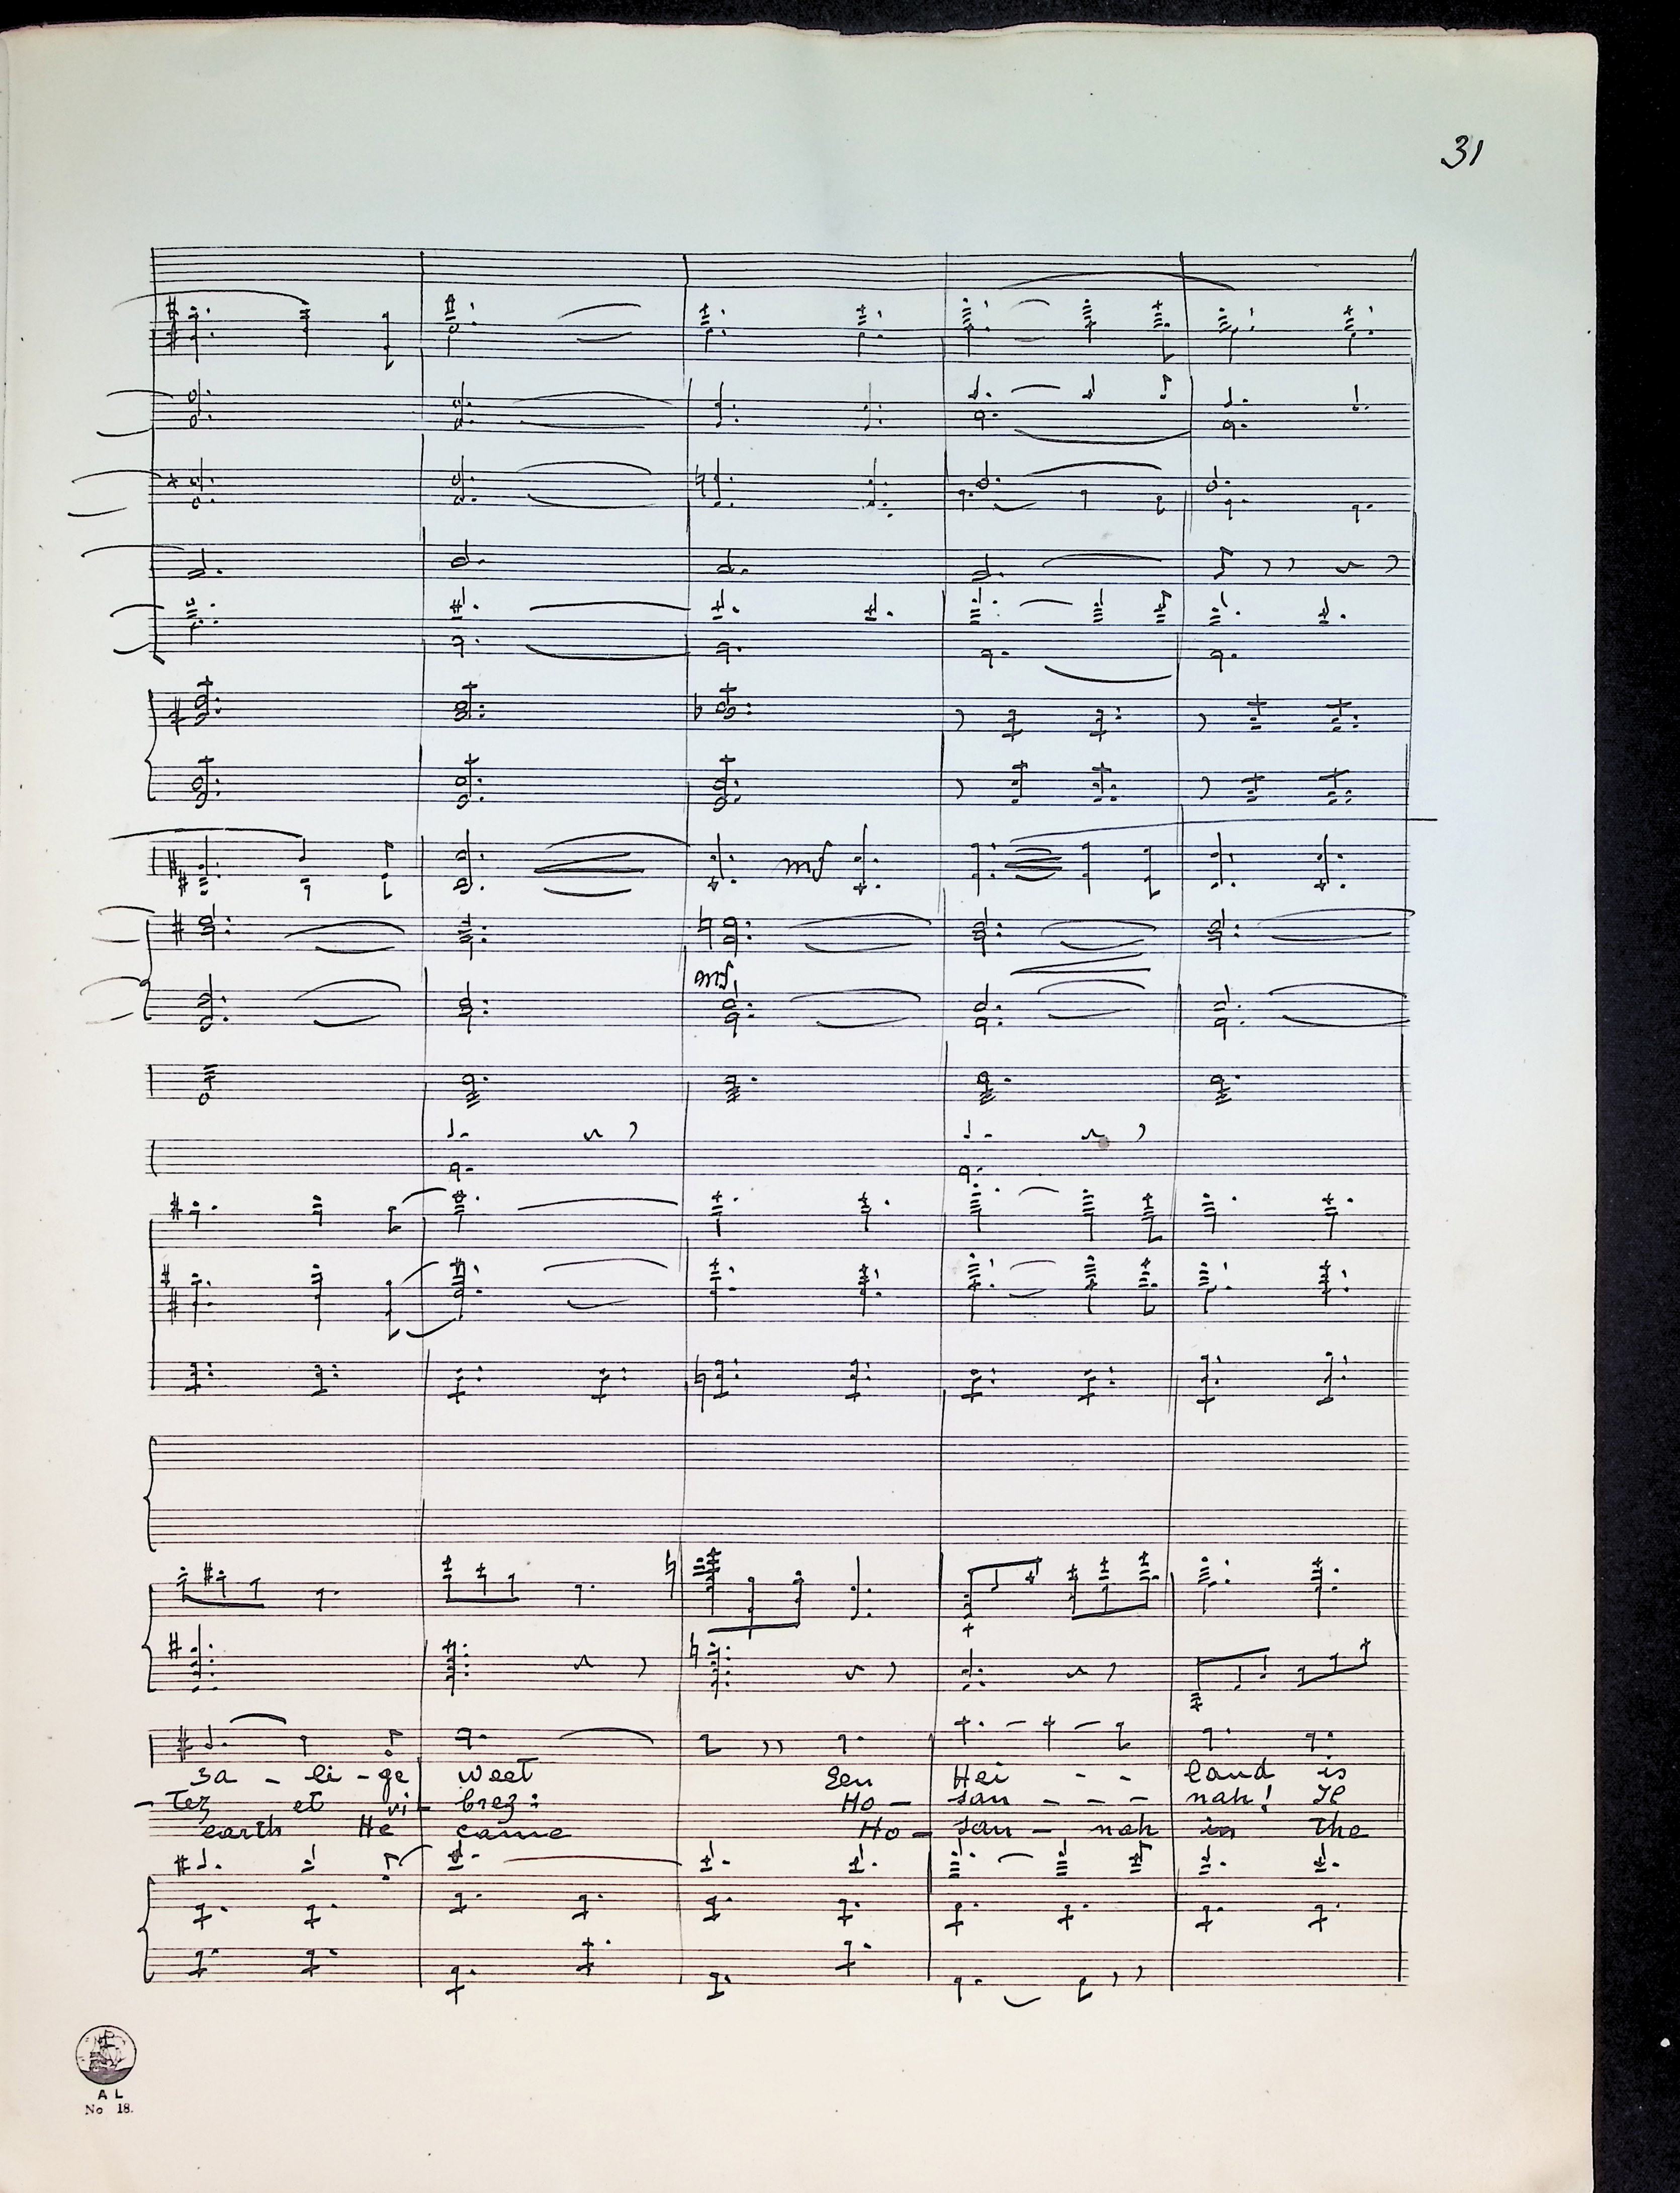 31
mf
mf
za - li - ge weet Een Hei - - land is
- tez et vi - brez: Ho - san - - - nah! Il
earth He came Ho - san - nah in the
A L
No 18.